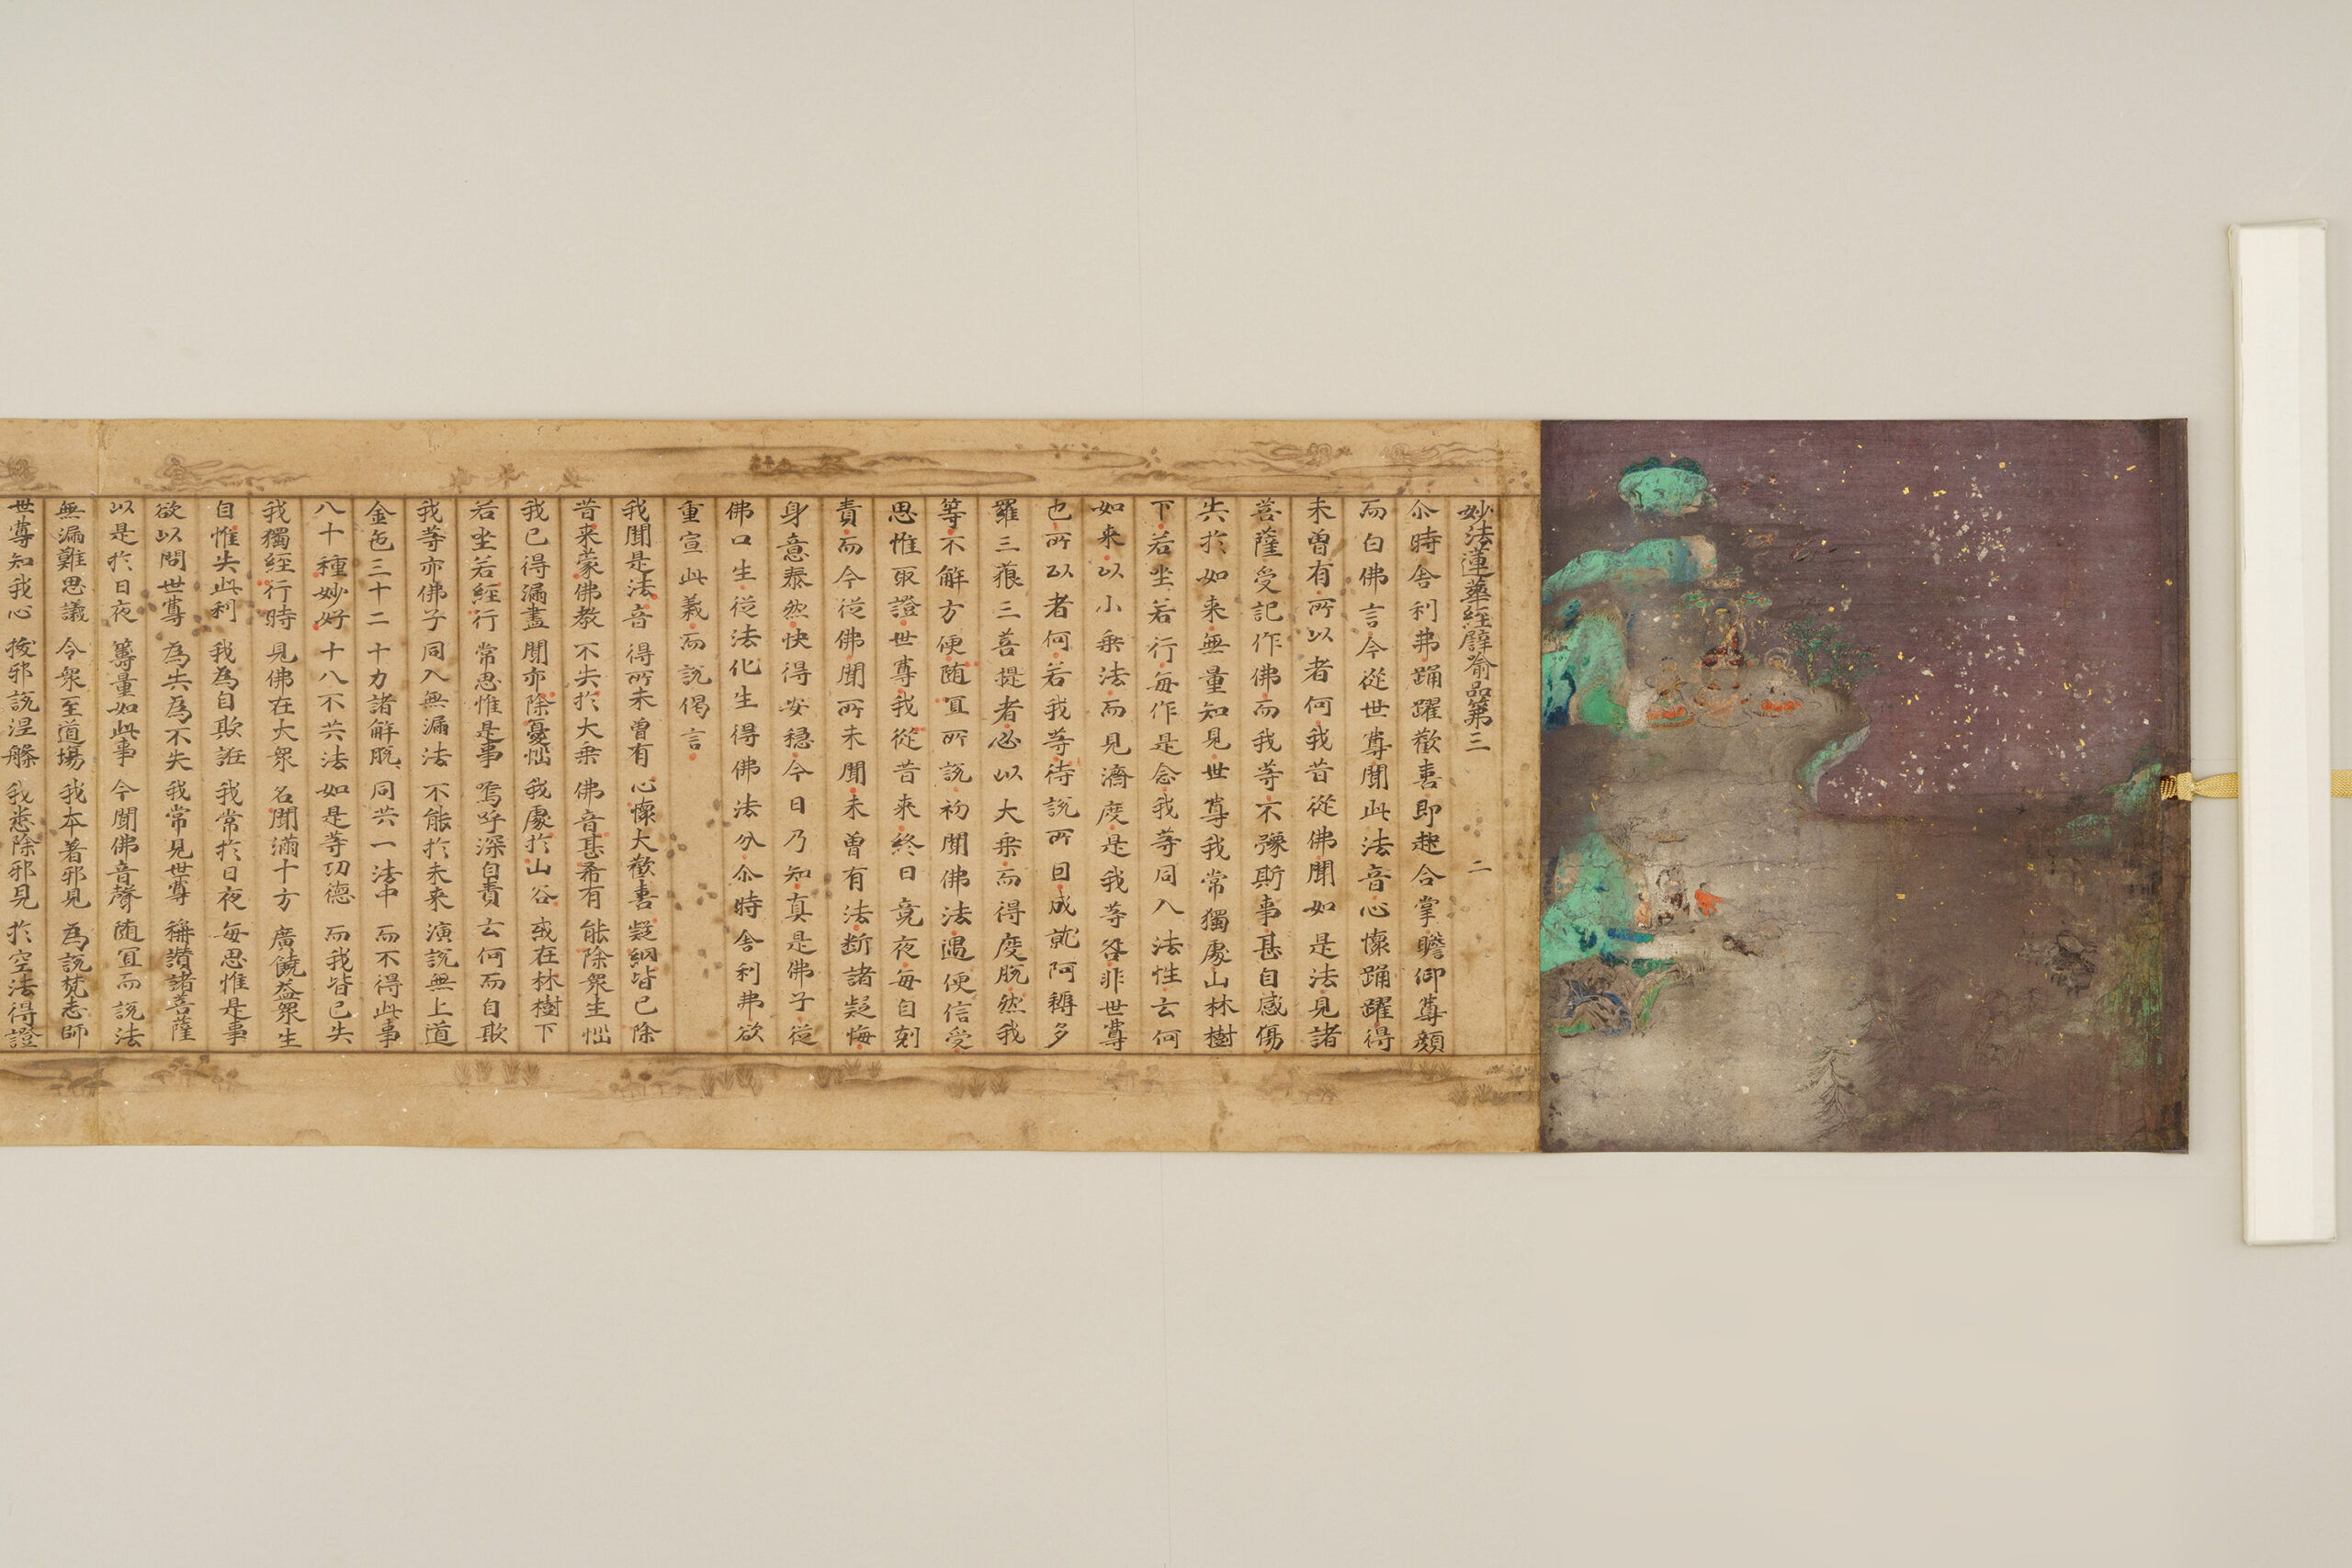 妙法蓮華經譬喻品第三 二
尒時舎利弗踊躍歡喜即起合掌瞻仰尊顏
而白佛言今從世尊聞此法音心懷踊躍得
未曽有所以者何我昔從佛聞如是法見諸
菩薩受記作佛而我等不豫斯事甚自感傷
失於如来無量知見世尊我常獨處山林樹
下若坐若行每作是念我等同入法性云何
如来以小乗法而見濟度是我等咎非世尊
也所以者何若我等待說所因成就阿耨多
羅三藐三菩提者必以大乗而得度脫然我
等不解方便随冝所說初聞佛法遇便信受
思惟取證世尊我從昔来終日竟夜每自剋
責而今從佛聞所未聞未曽有法断諸疑悔
身意泰然快得安穏今日乃知真是佛子從
佛口生從法化生得佛法分尒時舎利弗欲
重宣此義而說偈言
我聞是法音 得所未曽有 心懷大歡喜 疑網皆已除
昔来蒙佛教 不失於大乗 佛音甚希有 能除衆生惱
我已得漏盡 聞亦除憂惱 我處於山谷 或在林樹下
若坐若経行 常思惟是事 嗚呼深自責 云何而自欺
我等亦佛子 同入無漏法 不能於未来 演說無上道
金色三十二 十力諸解脫 同共一法中 而不得此事
八十種妙好 十八不共法 如是等功德 而我皆已失
我獨経行時 見佛在大衆 名聞滿十方 廣饒益衆生
自惟失此利 我為自欺誑 我常於日夜 每思惟是事
欲以問世尊 為失為不失 我常見世尊 稱讃諸菩薩
以是於日夜 籌量如此事 今聞佛音聲 随冝而說法
無漏難思議 令衆至道場 我本著邪見 為說梵志師
世尊知我心 拔邪說涅槃 我悉除邪見 於空法得證